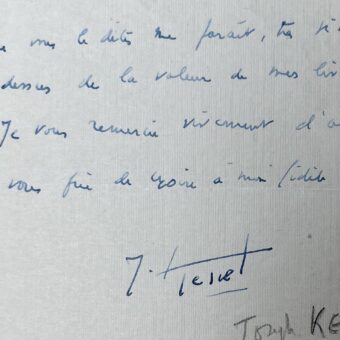 vous le dites me paraît, très
dessus de la valeur de mes
Je vous remercie vivement d'a
vous prie de croire à mon
J. Kessel
Joseph KE